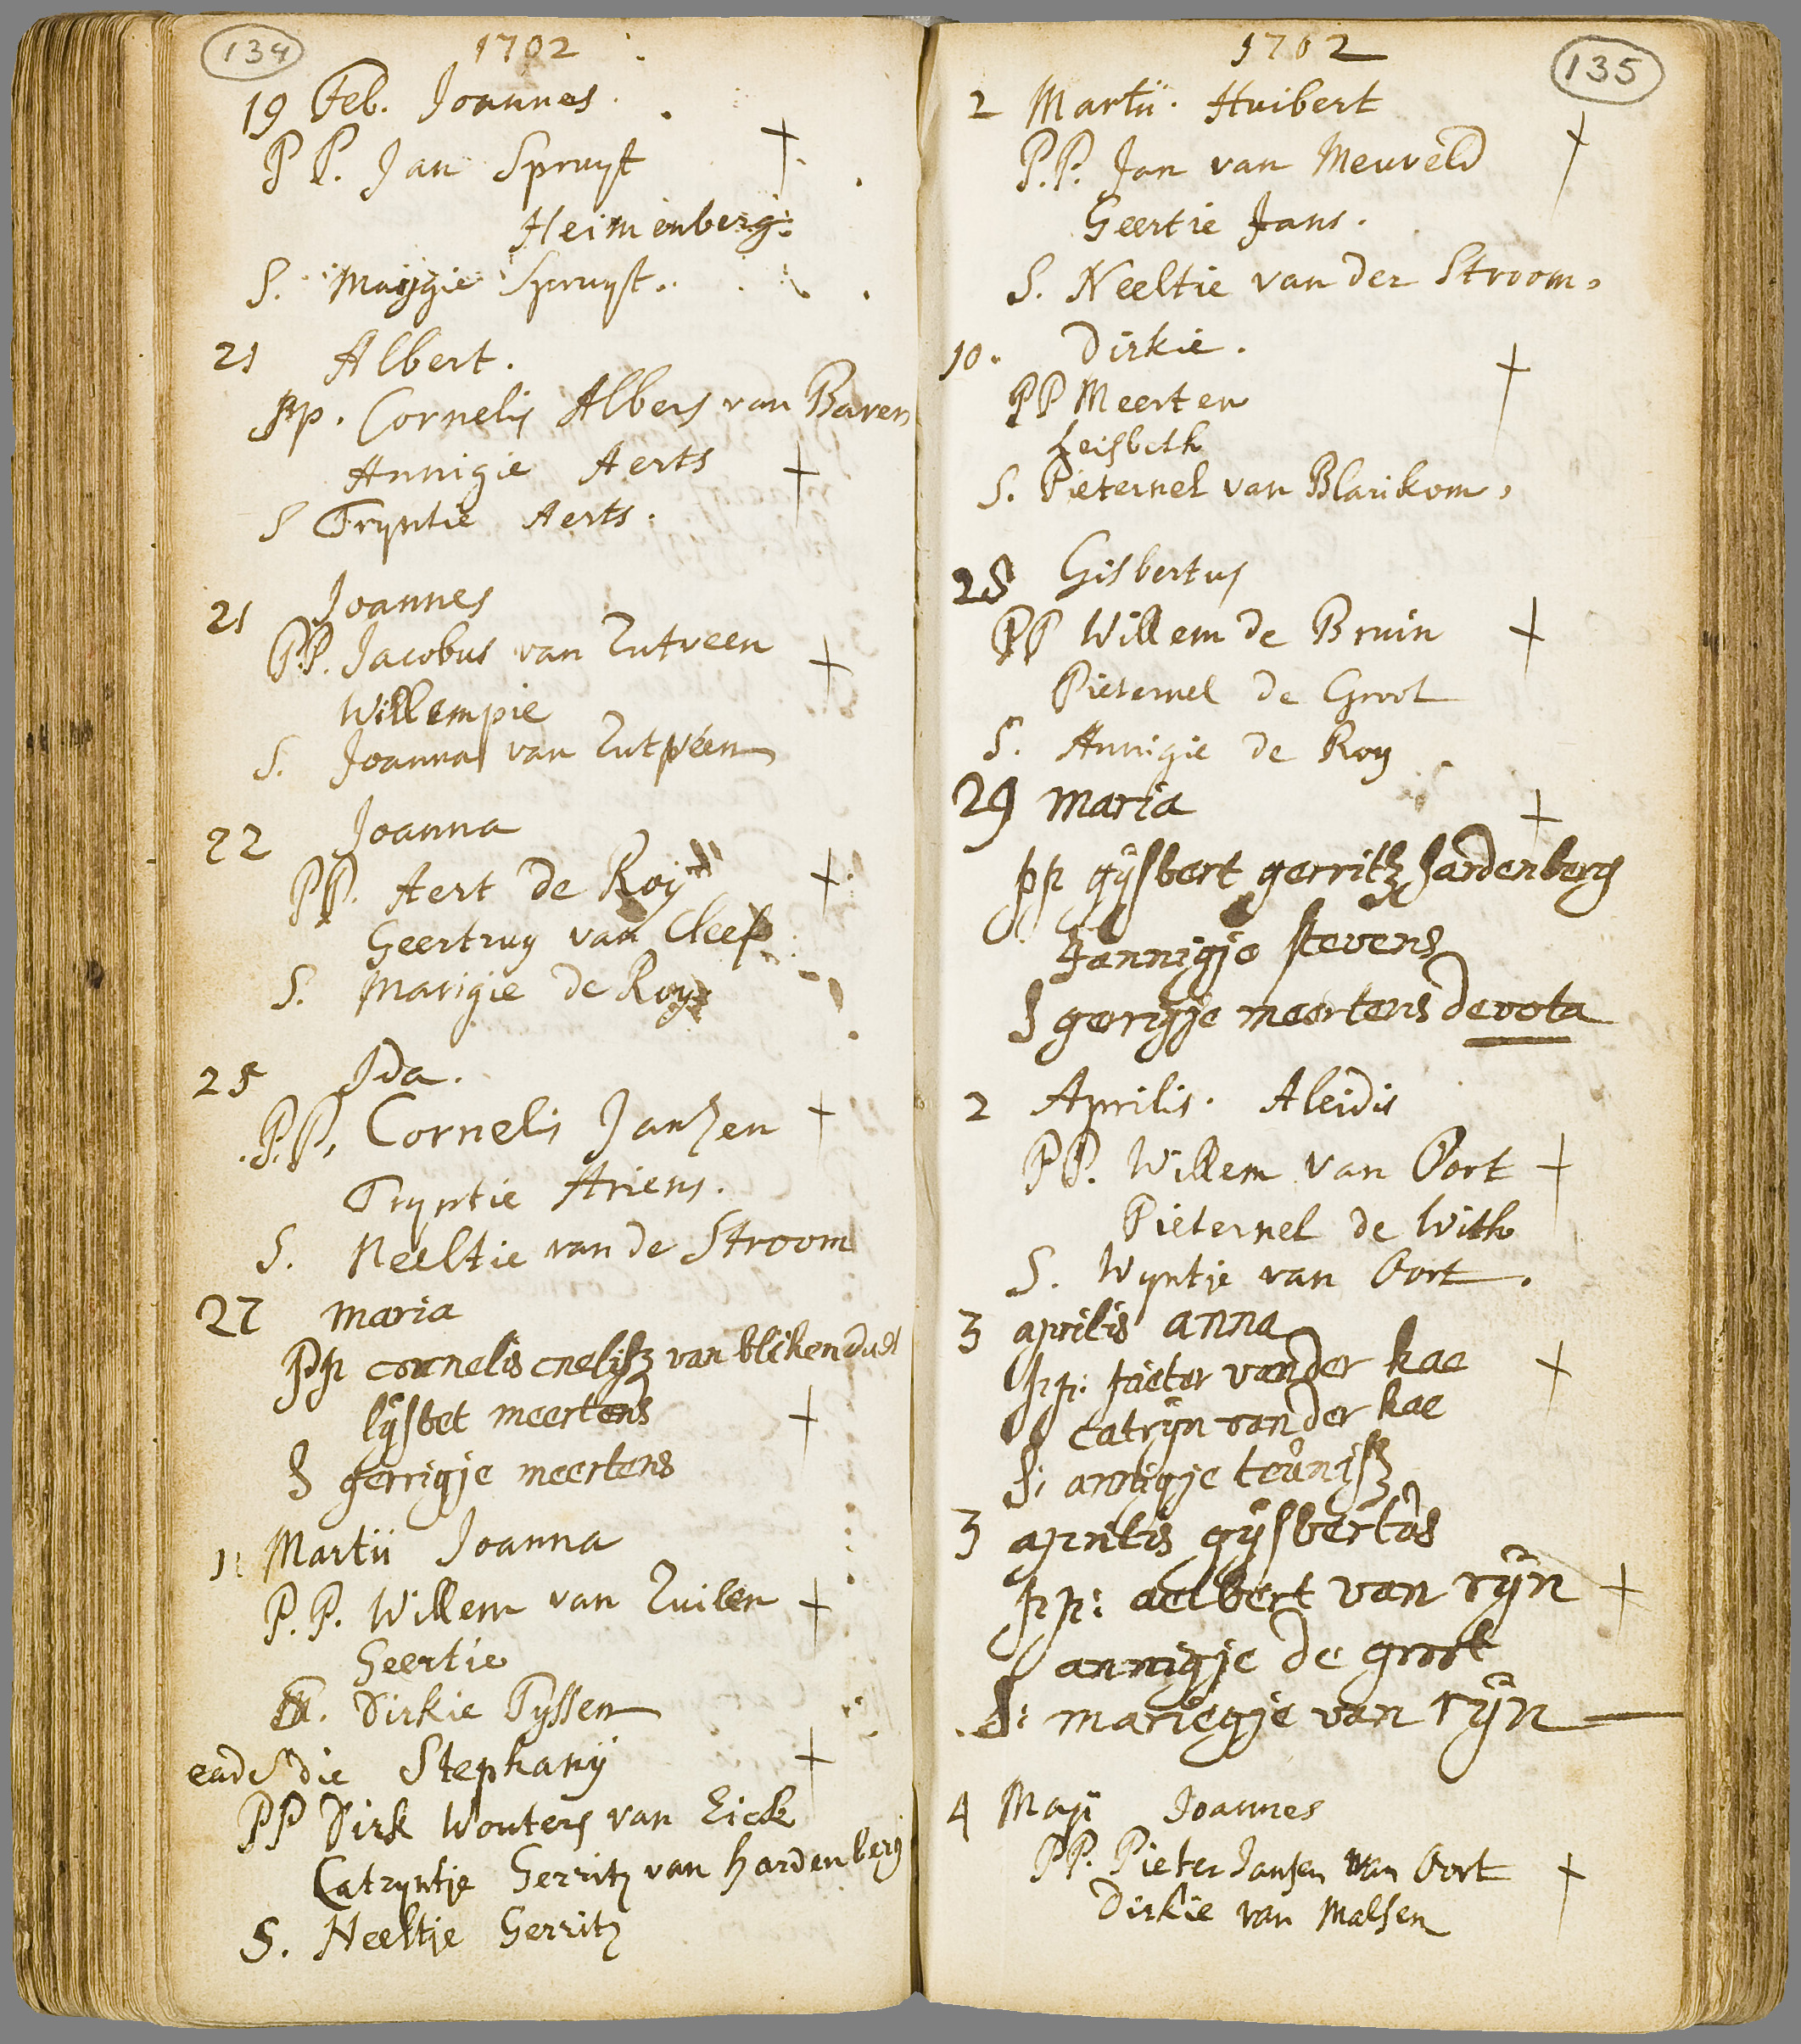 134
1702
19 Feb. Joannes.
P P. Jan Spruyt
Heimenberg.
S. Maijgie Spruyt.
21 Albert.
pp. Cornelis Albers van Baren
Annigie Aerts
S Tryntie Aerts.
21 Joannes
P.P. Jacobus van Zutveen
Willempie
S. Joanna van Zutveen
22 Joanna
PP. Aert de Roy
Geertruy van Cleef
S. Marigie de Roy
25 Ida.
P.P. Cornelis Janzen
Tryntie Ariens.
S. Neeltie van de Stroom
27 maria
pp cornelis cnelisz van blikendael
lijsbet meertens
S gerrigje meertens
1 Martii Joanna
P.P. Willem van Zuilen
Geertie
Dirkie Tyssen
eade die Stephany
PP Dirk Wouters van Eick
Catryntje Gerritz van Hardenberg
S. Neeltje Gerritz
1702
135
2 Martii. Huibert
P.P. Jan van Meuveld
Geertie Jans.
S. Neeltie van der Stroom.
10. Dirkie.
PP Meerten
Leisbeth
S. Pieternel van Blarikom.
28 Gisbertus
PP Willem de Bruin
Pieternel de Groot
S. Annigie de Roy
29 maria
pp gijsbert gerritz hardenberg
Jannigje stevens
S gerigje meertens devota
2 Aprilis. Aleidis
PP. Willem van Oort
Pieternel de With
S. Wyntje van Oort.
3 aprilis anna
pp: pieter vander kae
catrijn vander kae
S: annigje teunisz
3 aprilis gijsbertus
pp: aelbert van rijn
annigje de groot
S: mariegje van rijn
4 Maji Joannes
PP. Pieter Jansen van Oort
Dirkie van Malsen